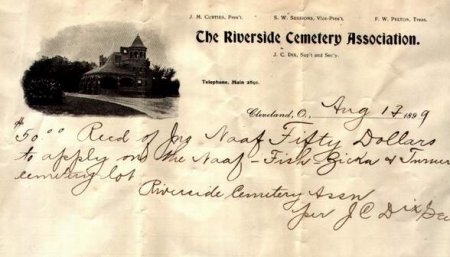 J. M. CURTISS, Pres't. S. W. SESSIONS, Vice-Pres't. F. W. PELTON, Treas.
The Riverside Cemetery Association.
J. C. DIX, Sup't and Sec'y.
Telephone, Main
Cleveland, O., Aug 17 1899
$50.00 Recd of Jno Naaf Fifty Dollars
to apply on the Naaf - Fish Zicka & Turner
cemetery lot
Riverside Cemetery Assn
per J C Dix Sec